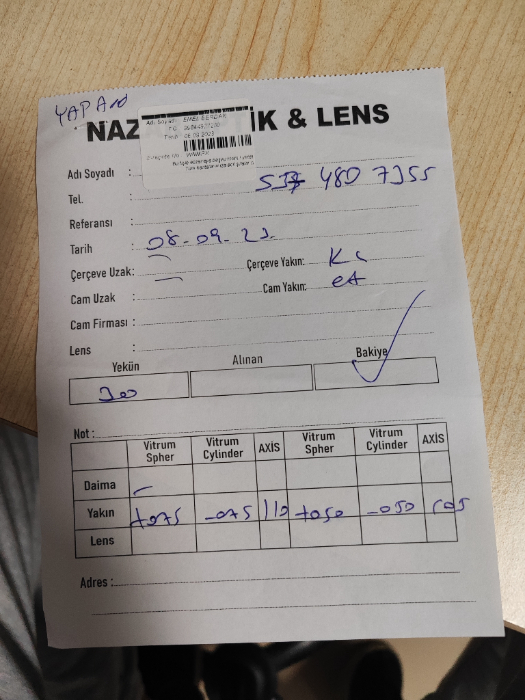 YAPAN
NAZ İK & LENS
Adı Soyadı :
Tel. : 480 7355
Referansı :
Tarih : 08-09-23
Çerçeve Uzak: — Çerçeve Yakın:
Cam Uzak : — Cam Yakın:
Cam Firması :
Lens :
Yekün Alınan Bakiye
300
Not :
Vitrum Spher Vitrum Cylinder AXİS Vitrum Spher Vitrum Cylinder AXİS
Daima —
Yakın +075 -075 110 +050 -050 105
Lens
Adres :